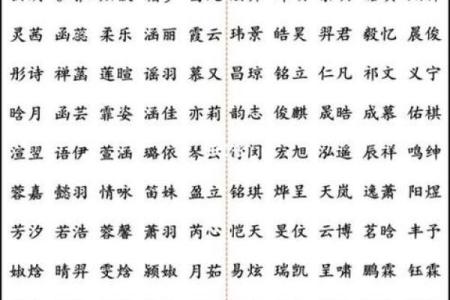 灵茜 函蕊 柔乐 涵丽 霞云 玮景 皓昊 羿君 毅忆 晨俊
彤诗 禅菡 莲暄 谣羽 慕又 昌琼 铭立 仁凡 祁文 义宁
晗月 函芸 霏姿 涵佳 亦莉 韵志 俊麒 晟皓 成慕 佑棋
渲翌 语伊 萱涵 璐依 琴 闰 宏旭 泓遥 辰祥 鸣绅
蓉嘉 懿羽 情咏 笛姝 盈立 铭琪 烨呈 天岚 逸萧 阳煜
芳汐 若浩 蓉馨 萧羽 芮心 恺天 昊仗 云博 茗晗 丰予
婌焓 晴羿 雯焓 颖婌 月茹 易炫 瑞凯 呈啸 鹏霖 钰霖